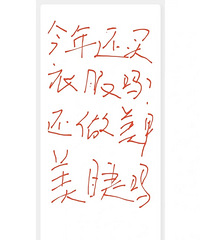 今年还买
衣服吗
还做美甲
美睫吗